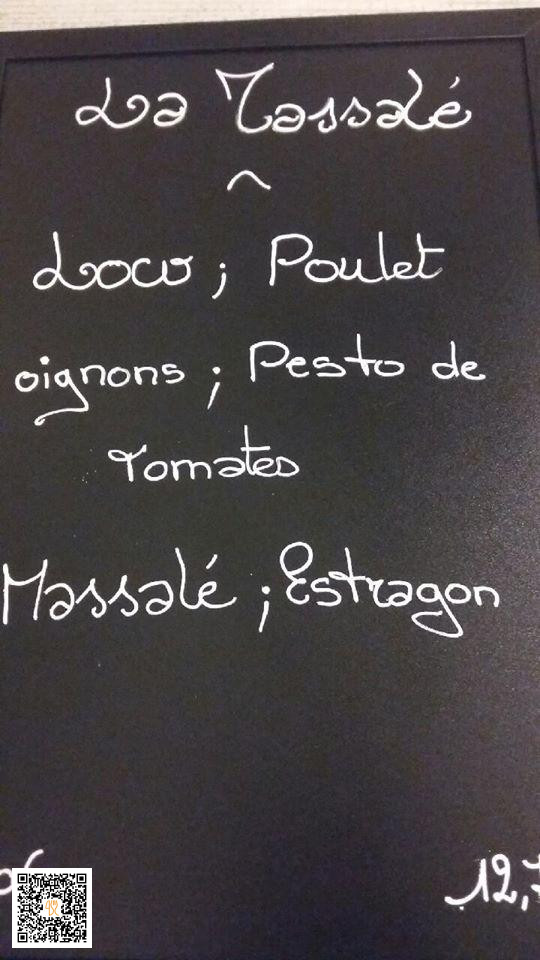 La Massalé
Loco ; Poulet
oignons ; Pesto de
Tomates
Massalé ; Estragon
12,7